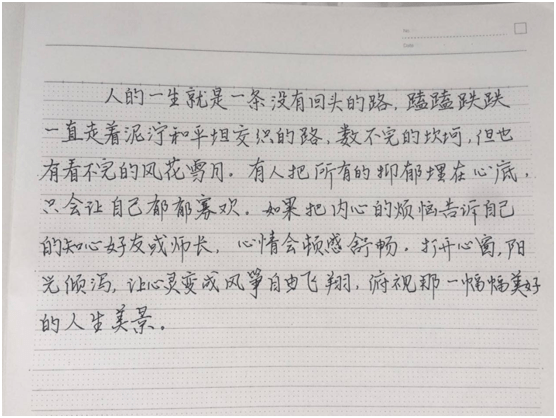 No.
Date
人的一生就是一条没有回头的路，磕磕跌跌
一直走着泥泞和平坦交织的路，数不完的坎坷，但也
有看不完的风花雪月。有人把所有的抑郁埋在心底，
只会让自己郁郁寡欢。如果把内心的烦恼告诉自己
的知心好友或师长，心情会顿感舒畅。打开心窗，阳
光倾泻，让心灵变成风筝自由飞翔，俯视那一幅幅美好
的人生美景。